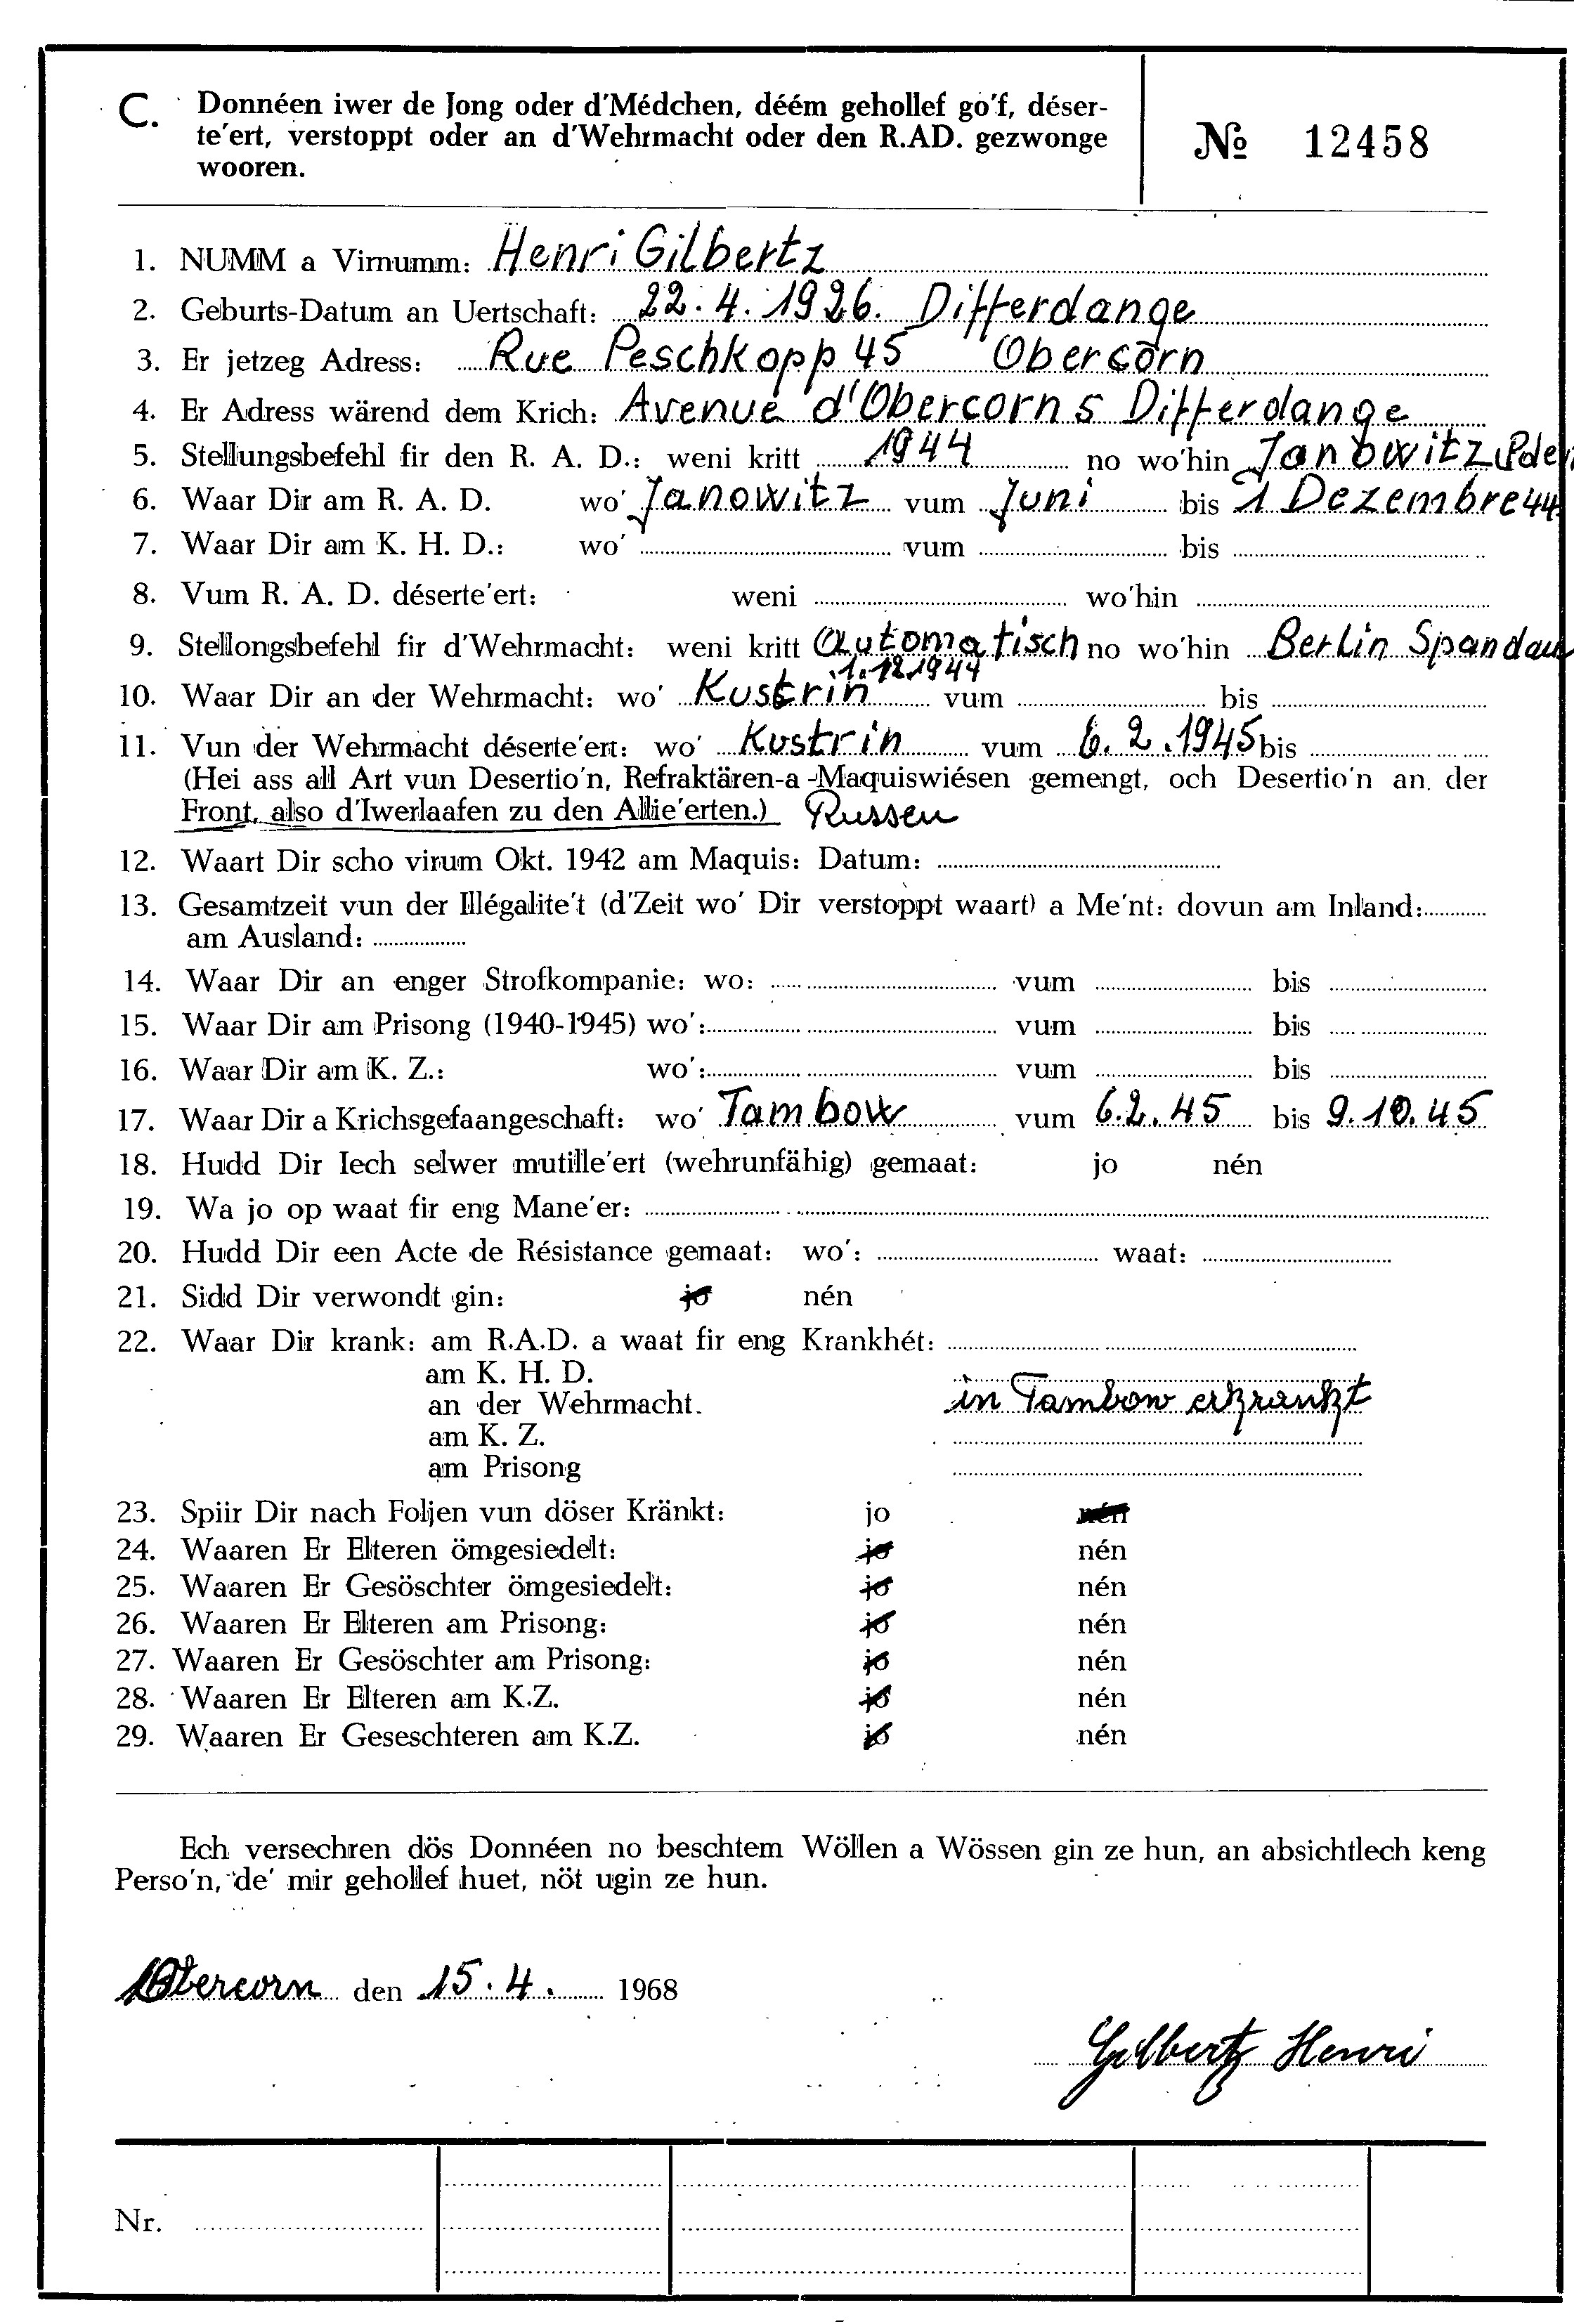 C. Donnéen iwer de Jong oder d'Médchen, déém gehollef go'f, déser-
te'ert, verstoppt oder an d'Wehrmacht oder den R.AD. gezwonge
wooren.
№ 12458
1. NUMM a Virnumm: Henri Gilbertz
2. Geburts-Datum an Uertschaft: 22.4.1926. Differdange
3. Er jetzeg Adress: Rue Peschkopp 45 Obercorn
4. Er Adress wärend dem Krich: Avenue d'Obercorn 5 Differdange
5. Stellungsbefehl fir den R. A. D.: weni kritt 1944 no wo'hin Janowitz
6. Waar Dir am R. A. D. wo' Janowitz vum Juni bis 1 Dezembre 44
7. Waar Dir am K. H. D.: wo' vum bis
8. Vum R. A. D. déserte'ert: weni wo'hin
9. Stellongsbefehl fir d'Wehrmacht: weni kritt automatisch no wo'hin Berlin Spandau
1.12.1944
10. Waar Dir an der Wehrmacht: wo' Kustrin vum bis
11. Vun der Wehrmacht déserte'ert: wo' Kustrin vum 6.2.1945 bis
(Hei ass all Art vun Desertio'n, Refraktären-a -Maquiswiésen gemengt, och Desertio'n an der
Front, also d'Iwerlaafen zu den Allie'erten.) Russen
12. Waart Dir scho virum Okt. 1942 am Maquis: Datum:
13. Gesamtzeit vun der Illégalite't (d'Zeit wo' Dir verstoppt waart) a Me'nt: dovun am Inland:
am Ausland:
14. Waar Dir an enger Strofkompanie: wo: vum bis
15. Waar Dir am Prisong (1940-1945) wo': vum bis
16. Waar Dir am K. Z.: wo': vum bis
17. Waar Dir a Krichsgefaangeschaft: wo' Tambow vum 6.2.45 bis 9.10.45
18. Hudd Dir Iech selwer mutille'ert (wehrunfähig) gemaat: jo nén
19. Wa jo op waat fir eng Mane'er:
20. Hudd Dir een Acte de Résistance gemaat: wo': waat:
21. Sidd Dir verwondt gin: jo nén
22. Waar Dir krank: am R.A.D. a waat fir eng Krankhét:
am K. H. D.
an der Wehrmacht. in Tambow erkrankt
am K. Z.
am Prisong
23. Spiir Dir nach Foljen vun döser Kränkt: jo nén
24. Waaren Er Elteren ömgesiedelt: jo nén
25. Waaren Er Gesöschter ömgesiedelt: jo nén
26. Waaren Er Elteren am Prisong: jo nén
27. Waaren Er Gesöschter am Prisong: jo nén
28. Waaren Er Elteren am K.Z. jo nén
29. Waaren Er Geseschteren am K.Z. jo nén
Ech versechren dös Donnéen no beschtem Wöllen a Wössen gin ze hun, an absichtlech keng
Perso'n, de' mir gehollef huet, nöt ugin ze hun.
Obercorn den 15.4. 1968
Gilbertz Henri
Nr.